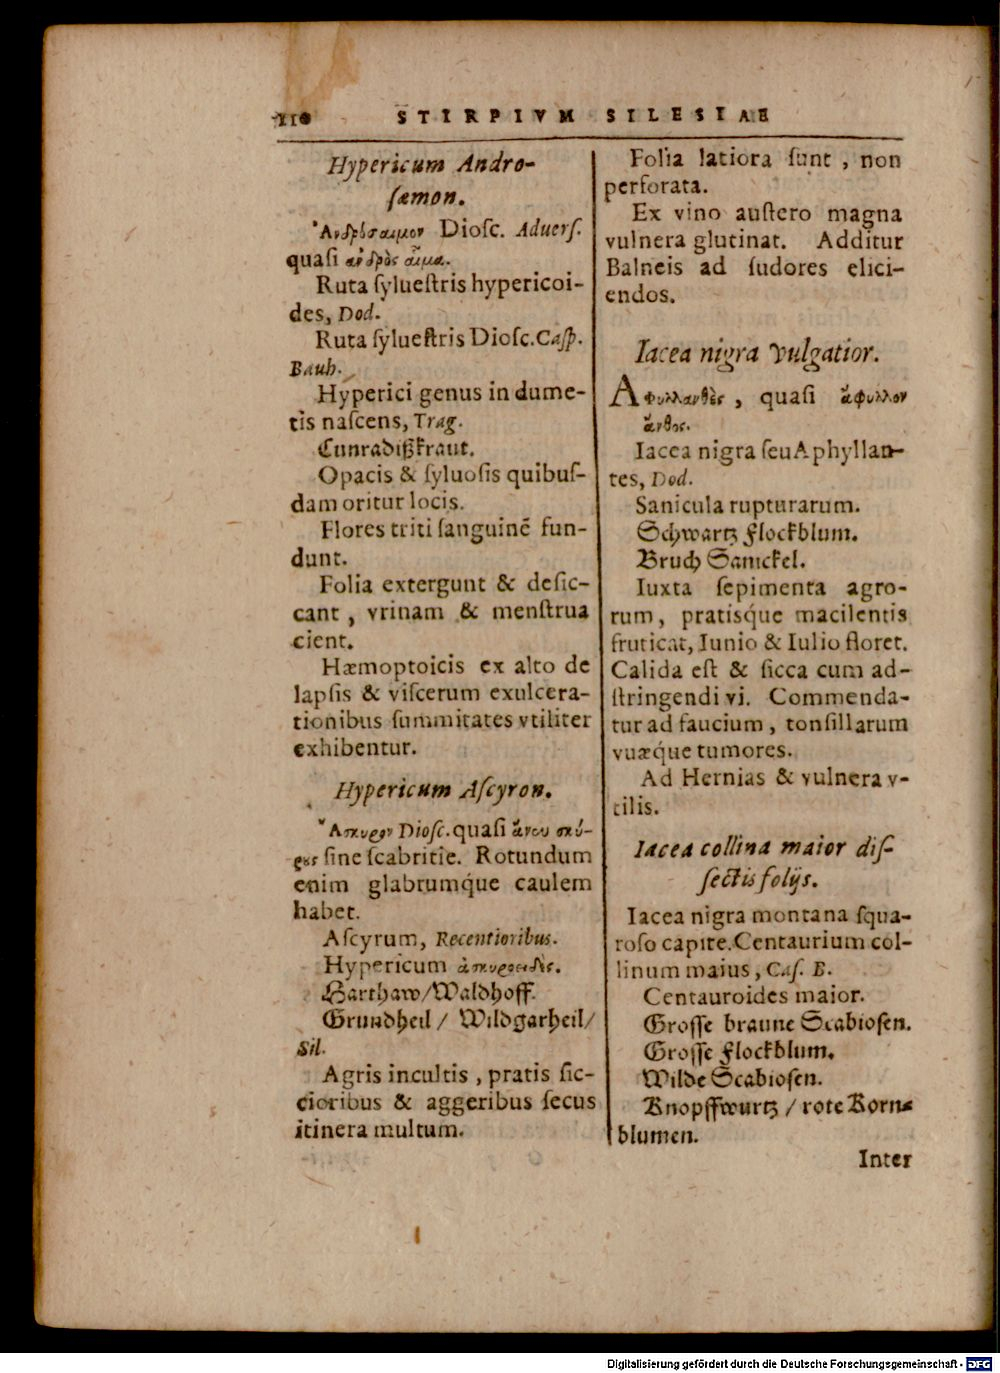 110 STIRPIVM SILESIAE
Hypericum Andro-
ſæmon.
Ἀνδρόσαιμον Dioſc. Aduerſ.
quaſi ἀνδρὸς αἷμα.
Ruta ſylueſtris hypericoi-
des, Dod.
Ruta ſylueſtris Dioſc. Caſp.
Bauh.
Hyperici genus in dume-
tis naſcens, Trag.
Cunradißkraut.
Opacis & ſyluoſis quibuſ-
dam oritur locis.
Flores triti ſanguinē fun-
dunt.
Folia extergunt & deſic-
cant, vrinam & menſtrua
cient.
Hæmoptoicis ex alto de
lapſis & viſcerum exulcera-
tionibus ſummitates vtiliter
exhibentur.
Hypericum Aſcyron.
Ἄσκυρον Dioſc. quaſi ἄνευ σκύ-
ρος ſine ſcabritie. Rotundum
enim glabrumq́ue caulem
habet.
Aſcyrum, Recentioribus.
Hypericum ἀσκυροειδὲς.
Harthaw/Waldhoff.
Grundheil / Wildgarheil/
Sil.
Agris incultis, pratis ſic-
cioribus & aggeribus ſecus
itinera multum.
Folia latiora ſunt, non
perforata.
Ex vino auſtero magna
vulnera glutinat. Additur
Balneis ad ſudores elici-
endos.
Iacea nigra vulgatior.
Αφυλλανθὲς, quaſi ἄφυλλον
ἄνθος.
Iacea nigra ſeu Aphyllan-
tes, Dod.
Sanicula rupturarum.
Schwartz Flockblum.
Bruch Sanickel.
Iuxta ſepimenta agro-
rum, pratisq́ue macilentis
fruticat, Iunio & Iulio floret.
Calida eſt & ſicca cum ad-
ſtringendi vi. Commenda-
tur ad faucium, tonſillarum
vuæq́ue tumores.
Ad Hernias & vulnera v-
tilis.
Iacea collina maior diſ-
ſectis folijs.
Iacea nigra montana ſqua-
roſo capite. Centaurium col-
linum maius, Caſ. B.
Centauroides maior.
Groſſe braune Scabioſen.
Groſſe Flockblum.
Wilde Scabioſen.
Knopffwurtz / rote Korn-
blumen.
Inter
Digitalisierung gefördert durch die Deutsche Forschungsgemeinschaft - DFG